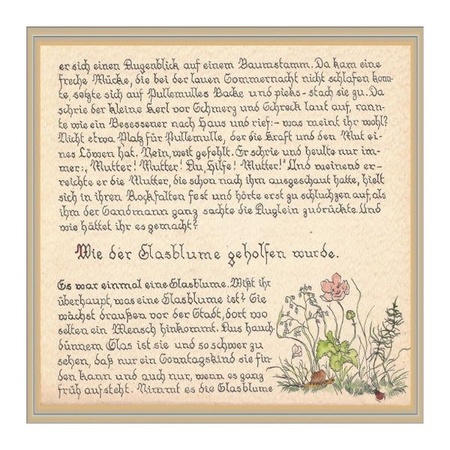 er sich einen Augenblick auf einem Baumstamm. Da kam eine
freche Mücke, die bei der lauen Sommernacht nicht schlafen konn-
te, setzte sich auf Pullemulles Backe und pieks- stach sie zu. Da
schrie der kleine Kerl vor Schmerz und Schreck laut auf, rann-
te wie ein Besessener nach Haus und rief: - was meint ihr wohl?
Nicht etwa Platz für Pullemulle, der die Kraft und den Mut ei-
nes Löwen hat. Nein, weit gefehlt. Er schrie und heulte nur im-
mer:„Mutter! Mutter! Du, Hilfe! Mutter!" Und weinend er-
reichte er die Mutter, die schon nach ihm ausgeschaut hatte, hielt
sich in ihren Rockfalten fest und hörte erst zu schluchzen auf, als
ihm der Sandmann ganz sachte die Äuglein zudrückte. Und
wie hättet ihr es gemacht?
Wie der Glasblume geholfen wurde.
Es war einmal eine Glasblume. Wißt ihr
überhaupt, was eine Glasblume ist? Sie
wächst draußen vor der Stadt, dort wo
selten ein Mensch hinkommt. Aus hauch-
dünnem Glas ist sie und so schwer zu
sehen, daß nur ein Sonntagskind sie fin-
den kann und auch nur, wenn es ganz
früh aufsteht. Nimmt es die Glasblume